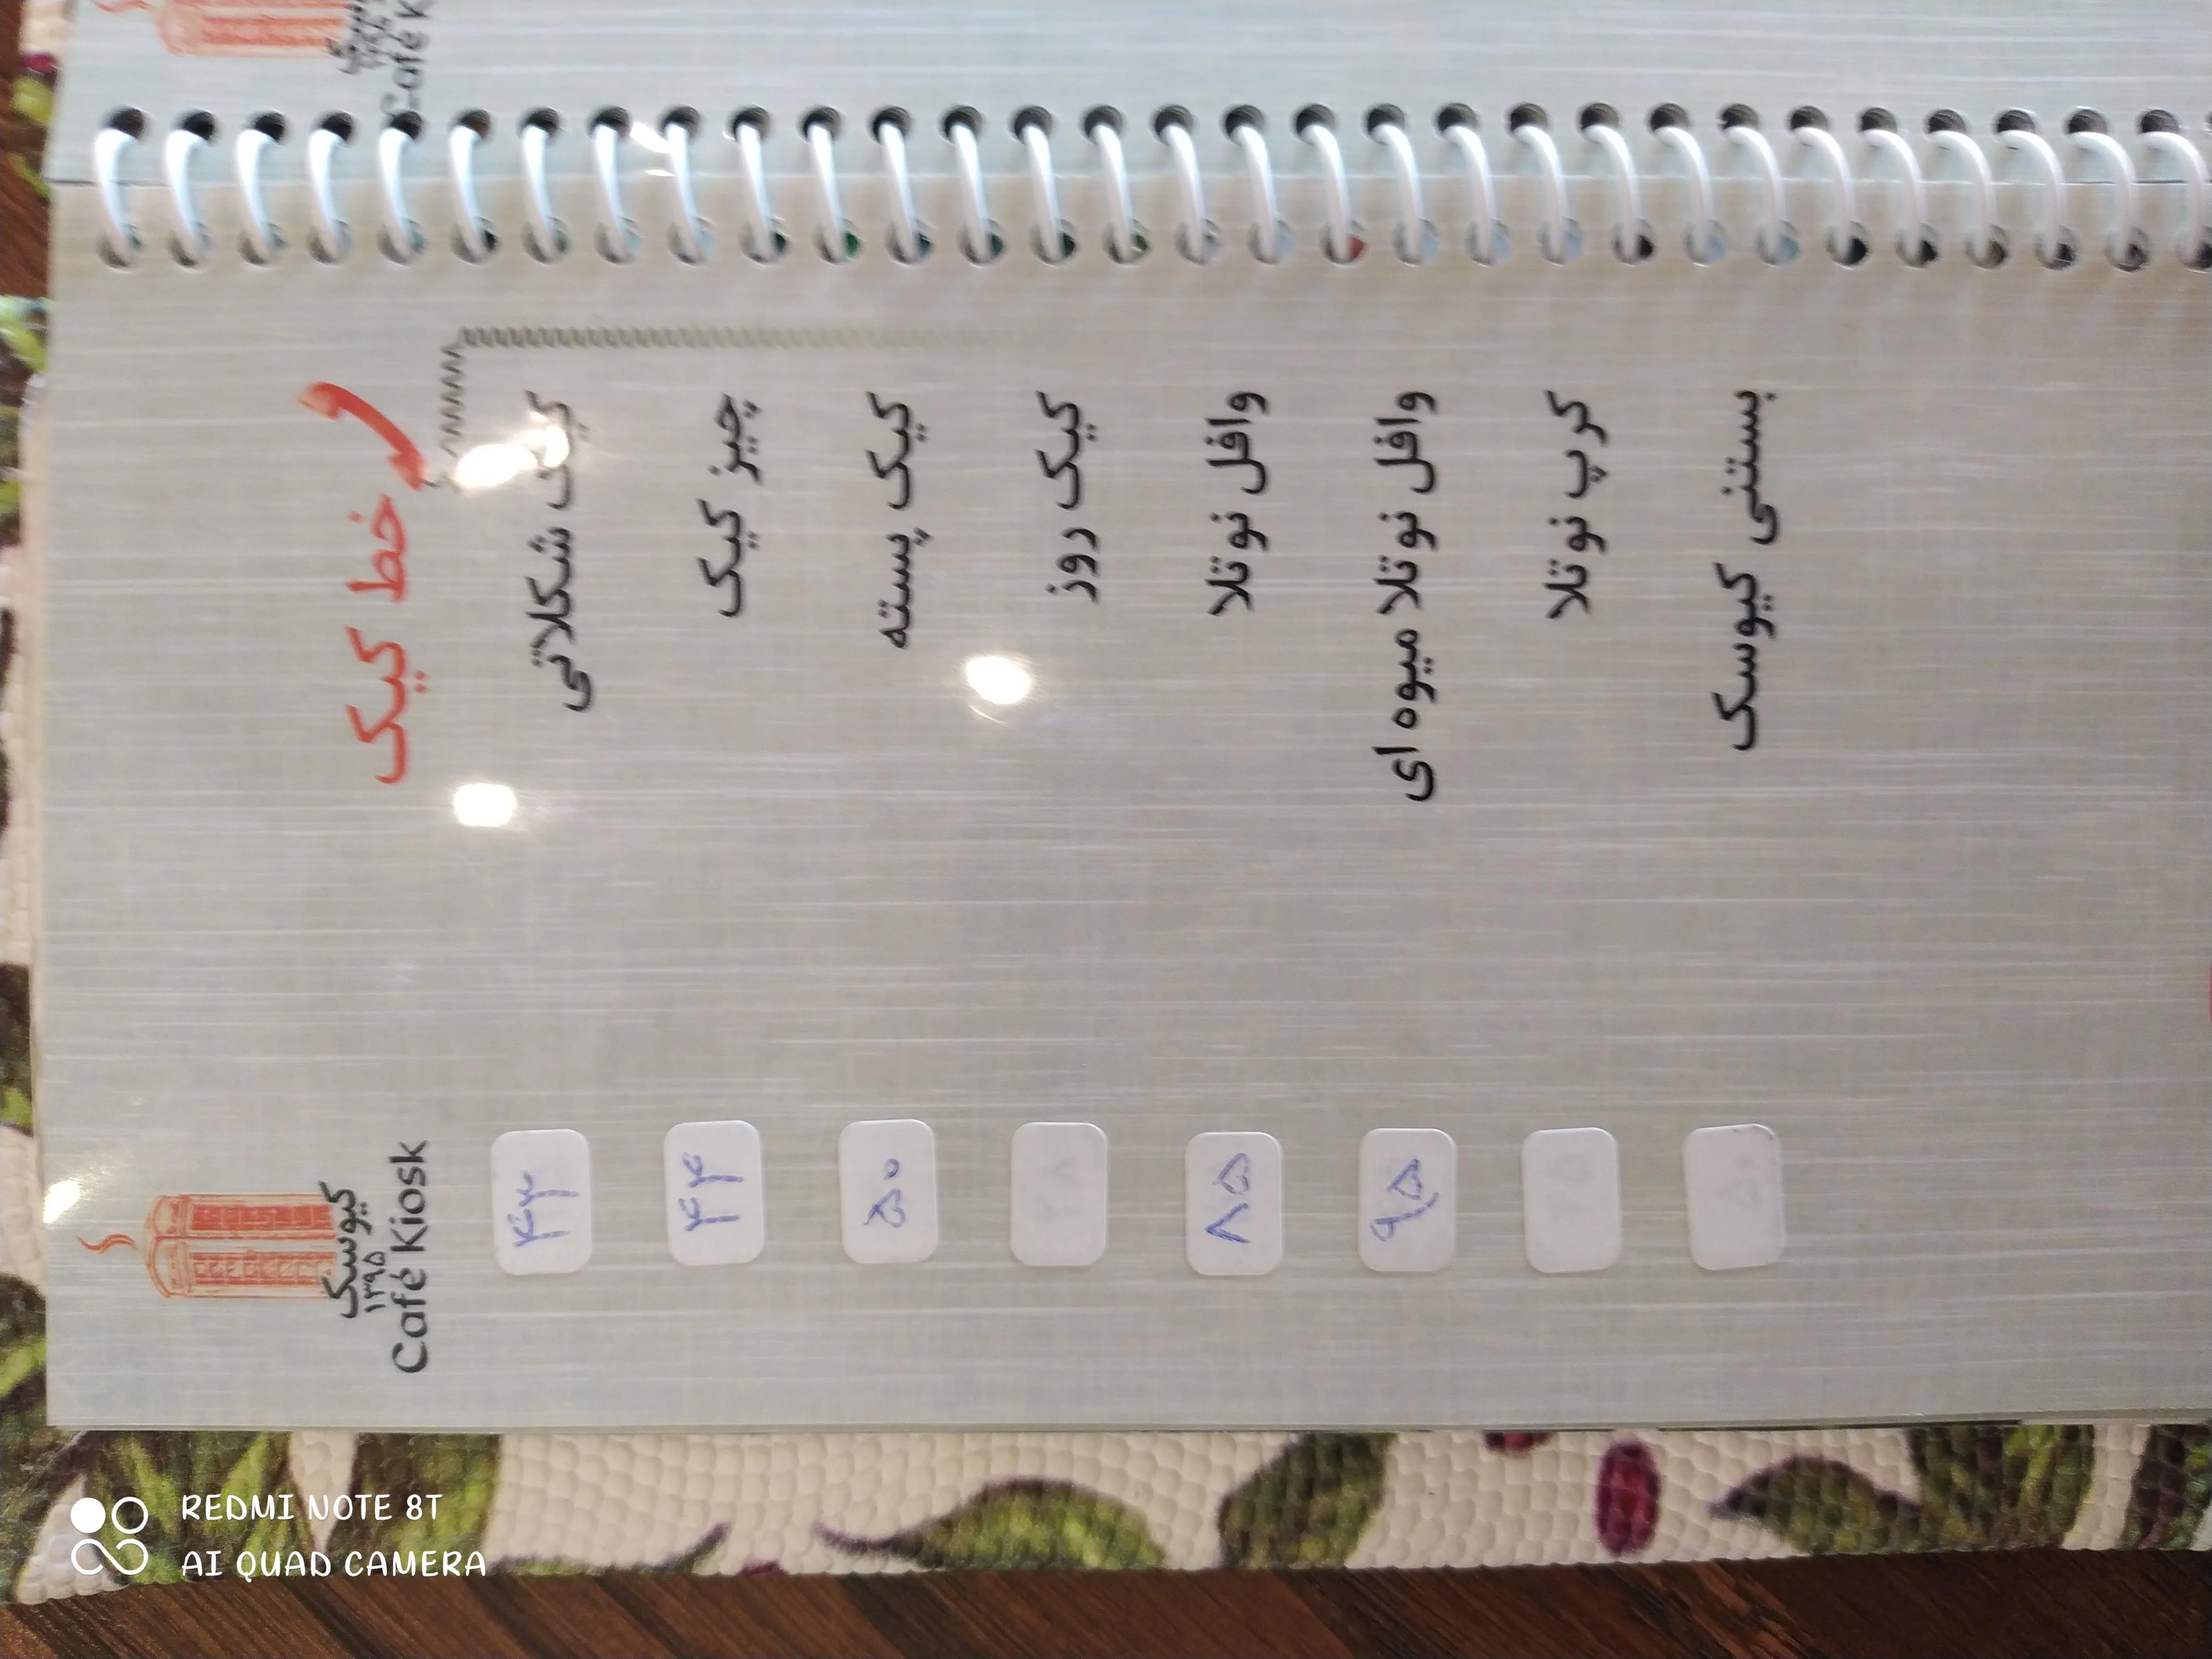 خط کیک
کیک شکلاتی ۴۳
چیز کیک ۴۴
کیک پسته ۵۰
کیک روز
وافل نوتلا ۸۵
وافل نوتلا میوه ای ۹۵
کرپ نوتلا
بستنی کیوسک
کیوسک
۱۳۹۵
Café Kiosk
REDMI NOTE 8T
AI QUAD CAMERA